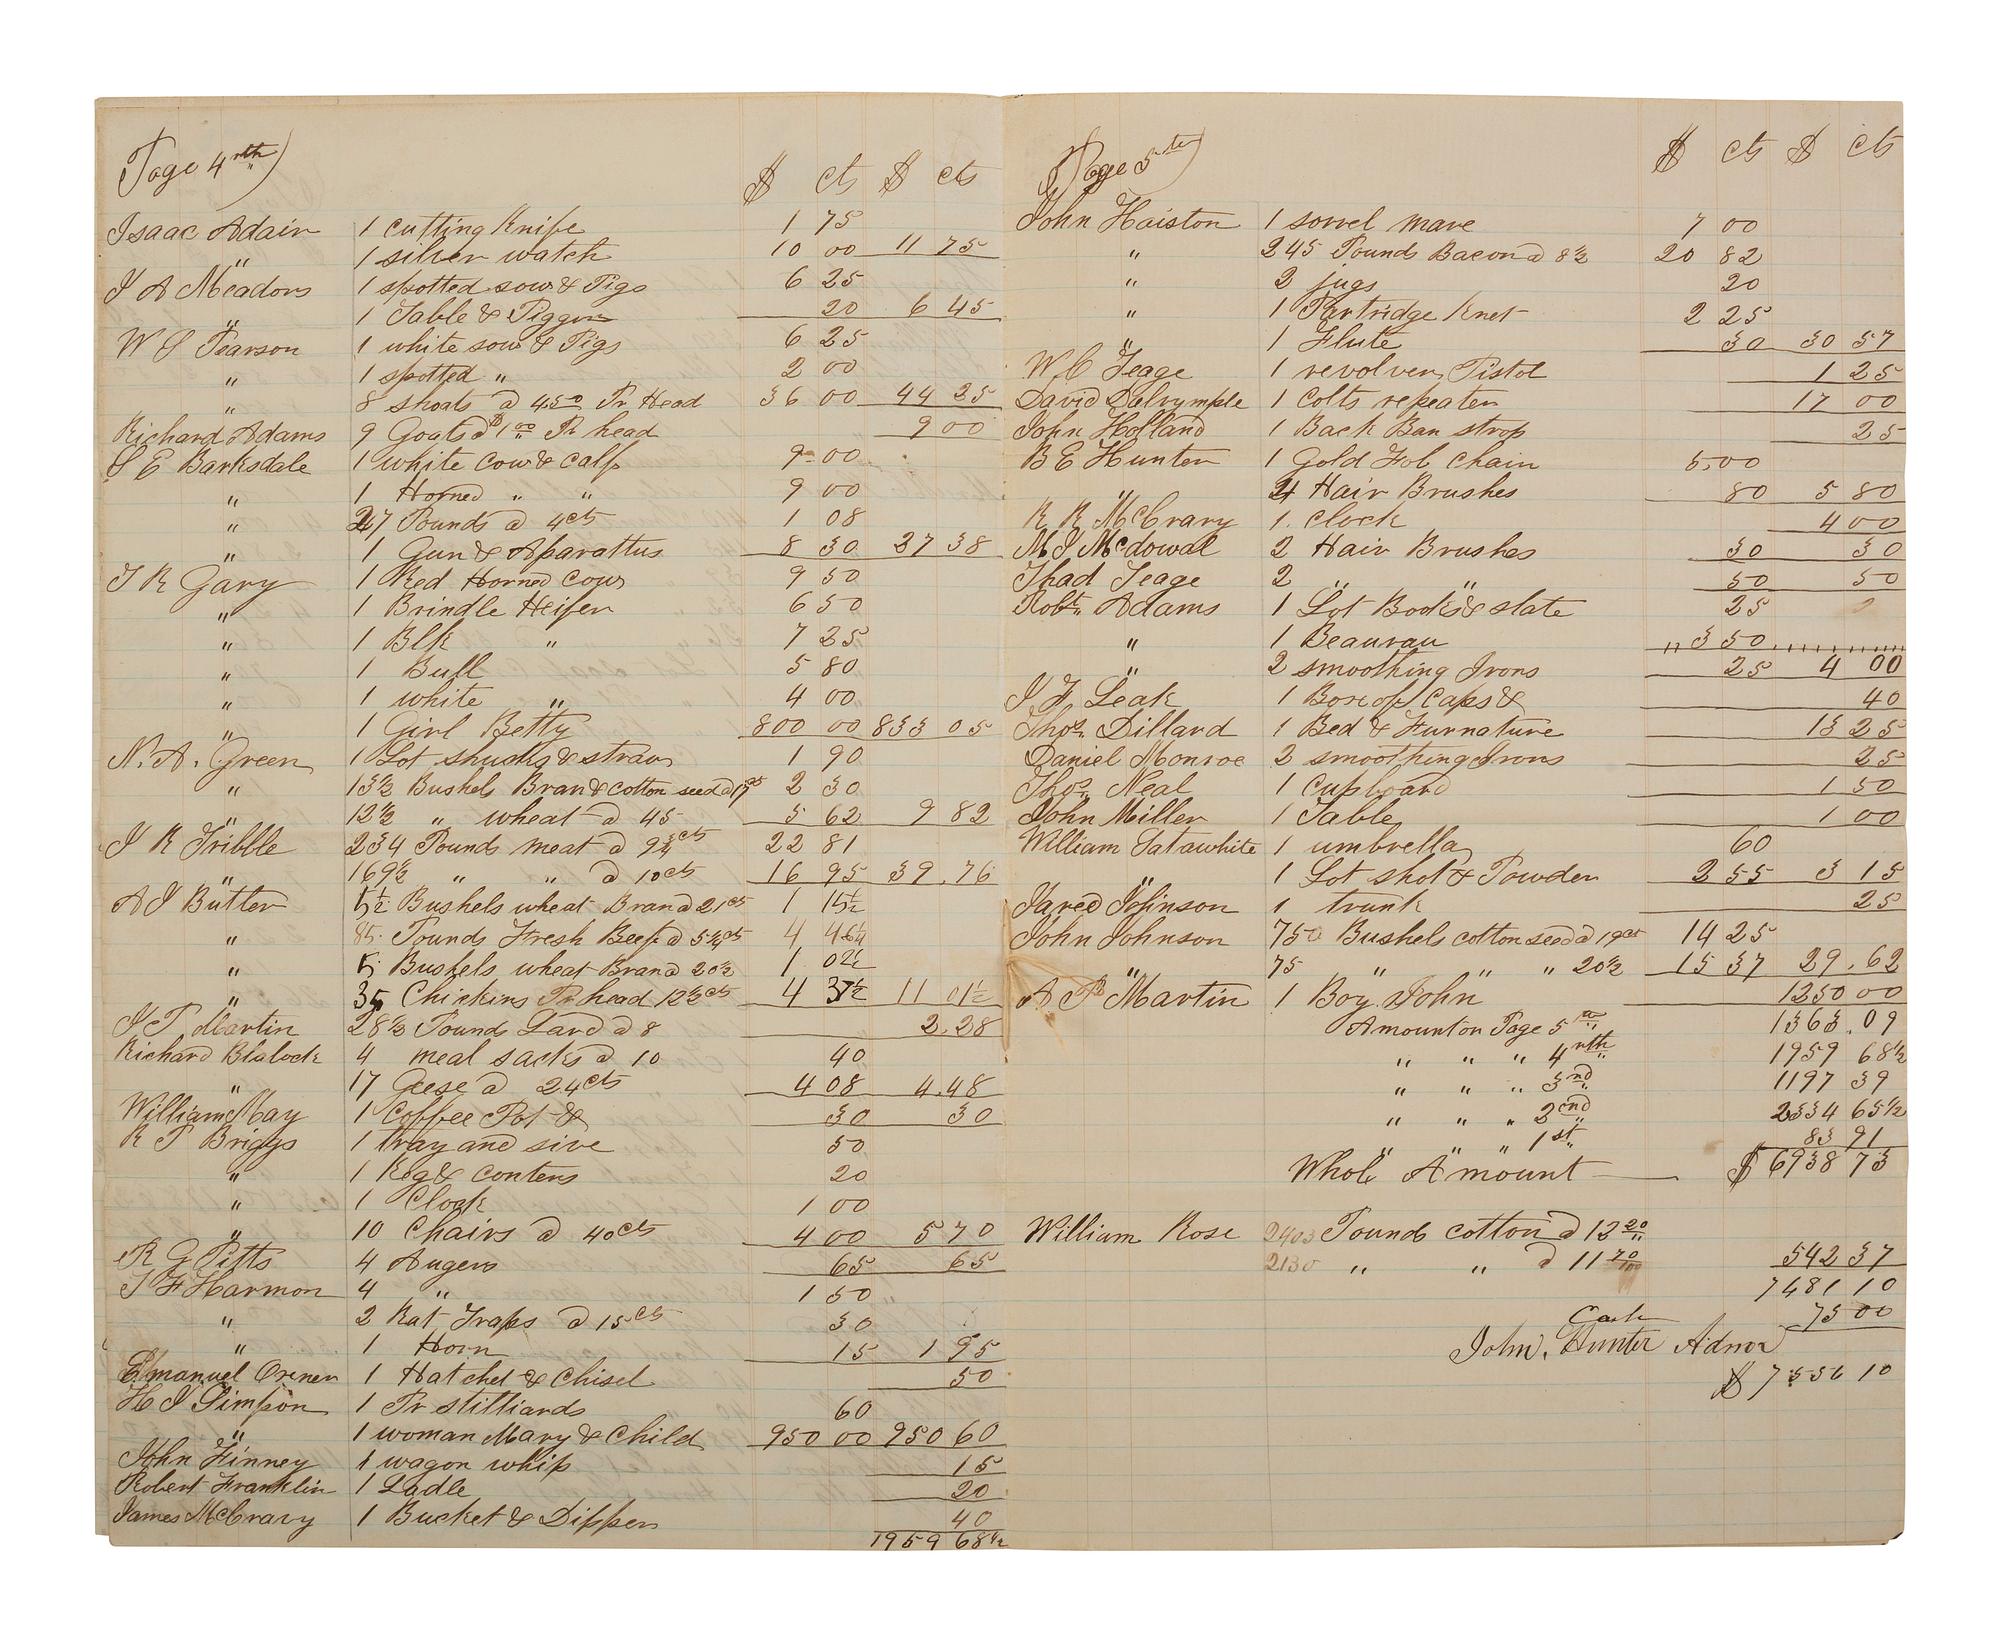 Page 4rth)
$ cts $ cts
Isaac Adair 1 Cutting Knife 1 75
" 1 silver watch 10 00 11 75
J A Meadors 1 spotted sow & Pigs 6 25
" 1 Table & Piggin 20 6 45
W S Pearson 1 white sow & Pigs 6 25
" 1 spotted " 2 00
" 8 shoats @ 4.50 Pr Head 36 00 44 25
Richard Adams 9 Goats @ $1 00 Pr head 9 00
S E Barksdale 1 white cow & calf 9 00
" 1 Horned " " 9 00
" 27 Pounds @ 4cts 1 08
" 1 Gun & Aparattus 8 30 27 38
J R Gary 1 Red Horned Cow 9 50
" 1 Brindle Heifer 6 50
" 1 Blk " 7 25
" 1 Bull 5 80
" 1 white " 4 00
" 1 Girl Betty 800 00 833 05
N. A. Green 1 Lot shucks & straw 1 90
" 13 1/2 Bushels Bran & cotton seed @ 17cts 2 30
" 12 1/2 " wheat @ 45 5 62 9 82
J R Tribble 234 Pounds meat @ 9 3/4 cts 22 81
" 169 1/2 " " @ 10cts 16 95 39.76
A J Butler 5 1/2 Bushels wheat Bran @ 21cts 1 15 1/2
" 85 Pounds Fresh Beef @ 5 1/4 cts 4 46 1/4
" 5 Bushels wheat Bran @ 20 1/2 1 02 1/2
" 35 Chickins Pr head 12 1/2 cts 4 37 1/2 11 01 1/2
J T Martin 28 1/2 Pounds Lard @ 8 2.28
Richard Blalock 4 meal sacks @ 10 40
" 17 Geese @ 24cts 4 08 4.48
William May 1 Coffee Pot & 30 30
R T Briggs 1 tray and sive 50
" 1 Keg & contens 20
" 1 Clock 1 00
" 10 Chairs @ 40cts 4 00 5 70
R G Pitts 4 Augers 65 65
S F Harmon 4 " 1 50
" 2 Rat Traps @ 15cts 30
" 1 Horn 15 1 95
Emanuel Orener 1 Hatchet & Chisel 50
H J Simpson 1 Pr stilliards 60
" 1 woman Mary & Child 950 00 950 60
John Finney 1 wagon whip 15
Robert Franklin 1 Ladle 20
James McCrary 1 Bucket & Dipper 40
1959 68 1/2
Page 5th)
$ cts $ cts
John Haiston 1 sorrel mare 7 00
" 245 Pounds Bacon @ 8 1/2 20 82
" 2 jugs 20
" 1 Partridge Knet 2 25
" 1 Flute 30 30 57
W. C Teage 1 revolver Pistol 1 25
David Dalrymple 1 Colts repeater 17 00
John Holland 1 Back Ban strap 25
B E Hunter 1 Gold Fob Chain 5.00
" 4 Hair Brushes 80 5 80
R R McCrary 1 clock 4 00
M J Mcdowal 2 Hair Brushes 30 30
Thad Teage 2 " " 50 50
Robt. Adams 1 Lot Books & slate 25
" 1 Beaurau 3 50
" 2 smoothing Irons 25 4 00
J F Leak 1 Box of Caps & 40
Thos. Dillard 1 Bed & Furnature 13 25
Daniel Monroe 2 smoothing Irons 25
Thos. Neal 1 Cupboard 1 50
John Miller 1 Table 1 00
William Satawhite 1 umbrella 60
" 1 Lot shot & Powder 2 55 3 15
Jared Johnson 1 trunk 25
John Johnson 75 Bushels cotton seed @ 19cts 14 25
" 75 " " " 20 1/2 15 37 29.62
A P Martin 1 Boy John 1250 00
Amount on Page 5th 1363.09
" " " 4rth 1959 68 1/2
" " " 3nd 1197 39
" " " 2nd 2334 65 1/2
" " " 1st 83 91
Whole Amount $6938 73
William Rose 2403 Pounds cotton @ 12 20
2130 " " @ 11 70/100 542 37
7481 10
Cash 75 00
John. Hunter Admor
$7556 10